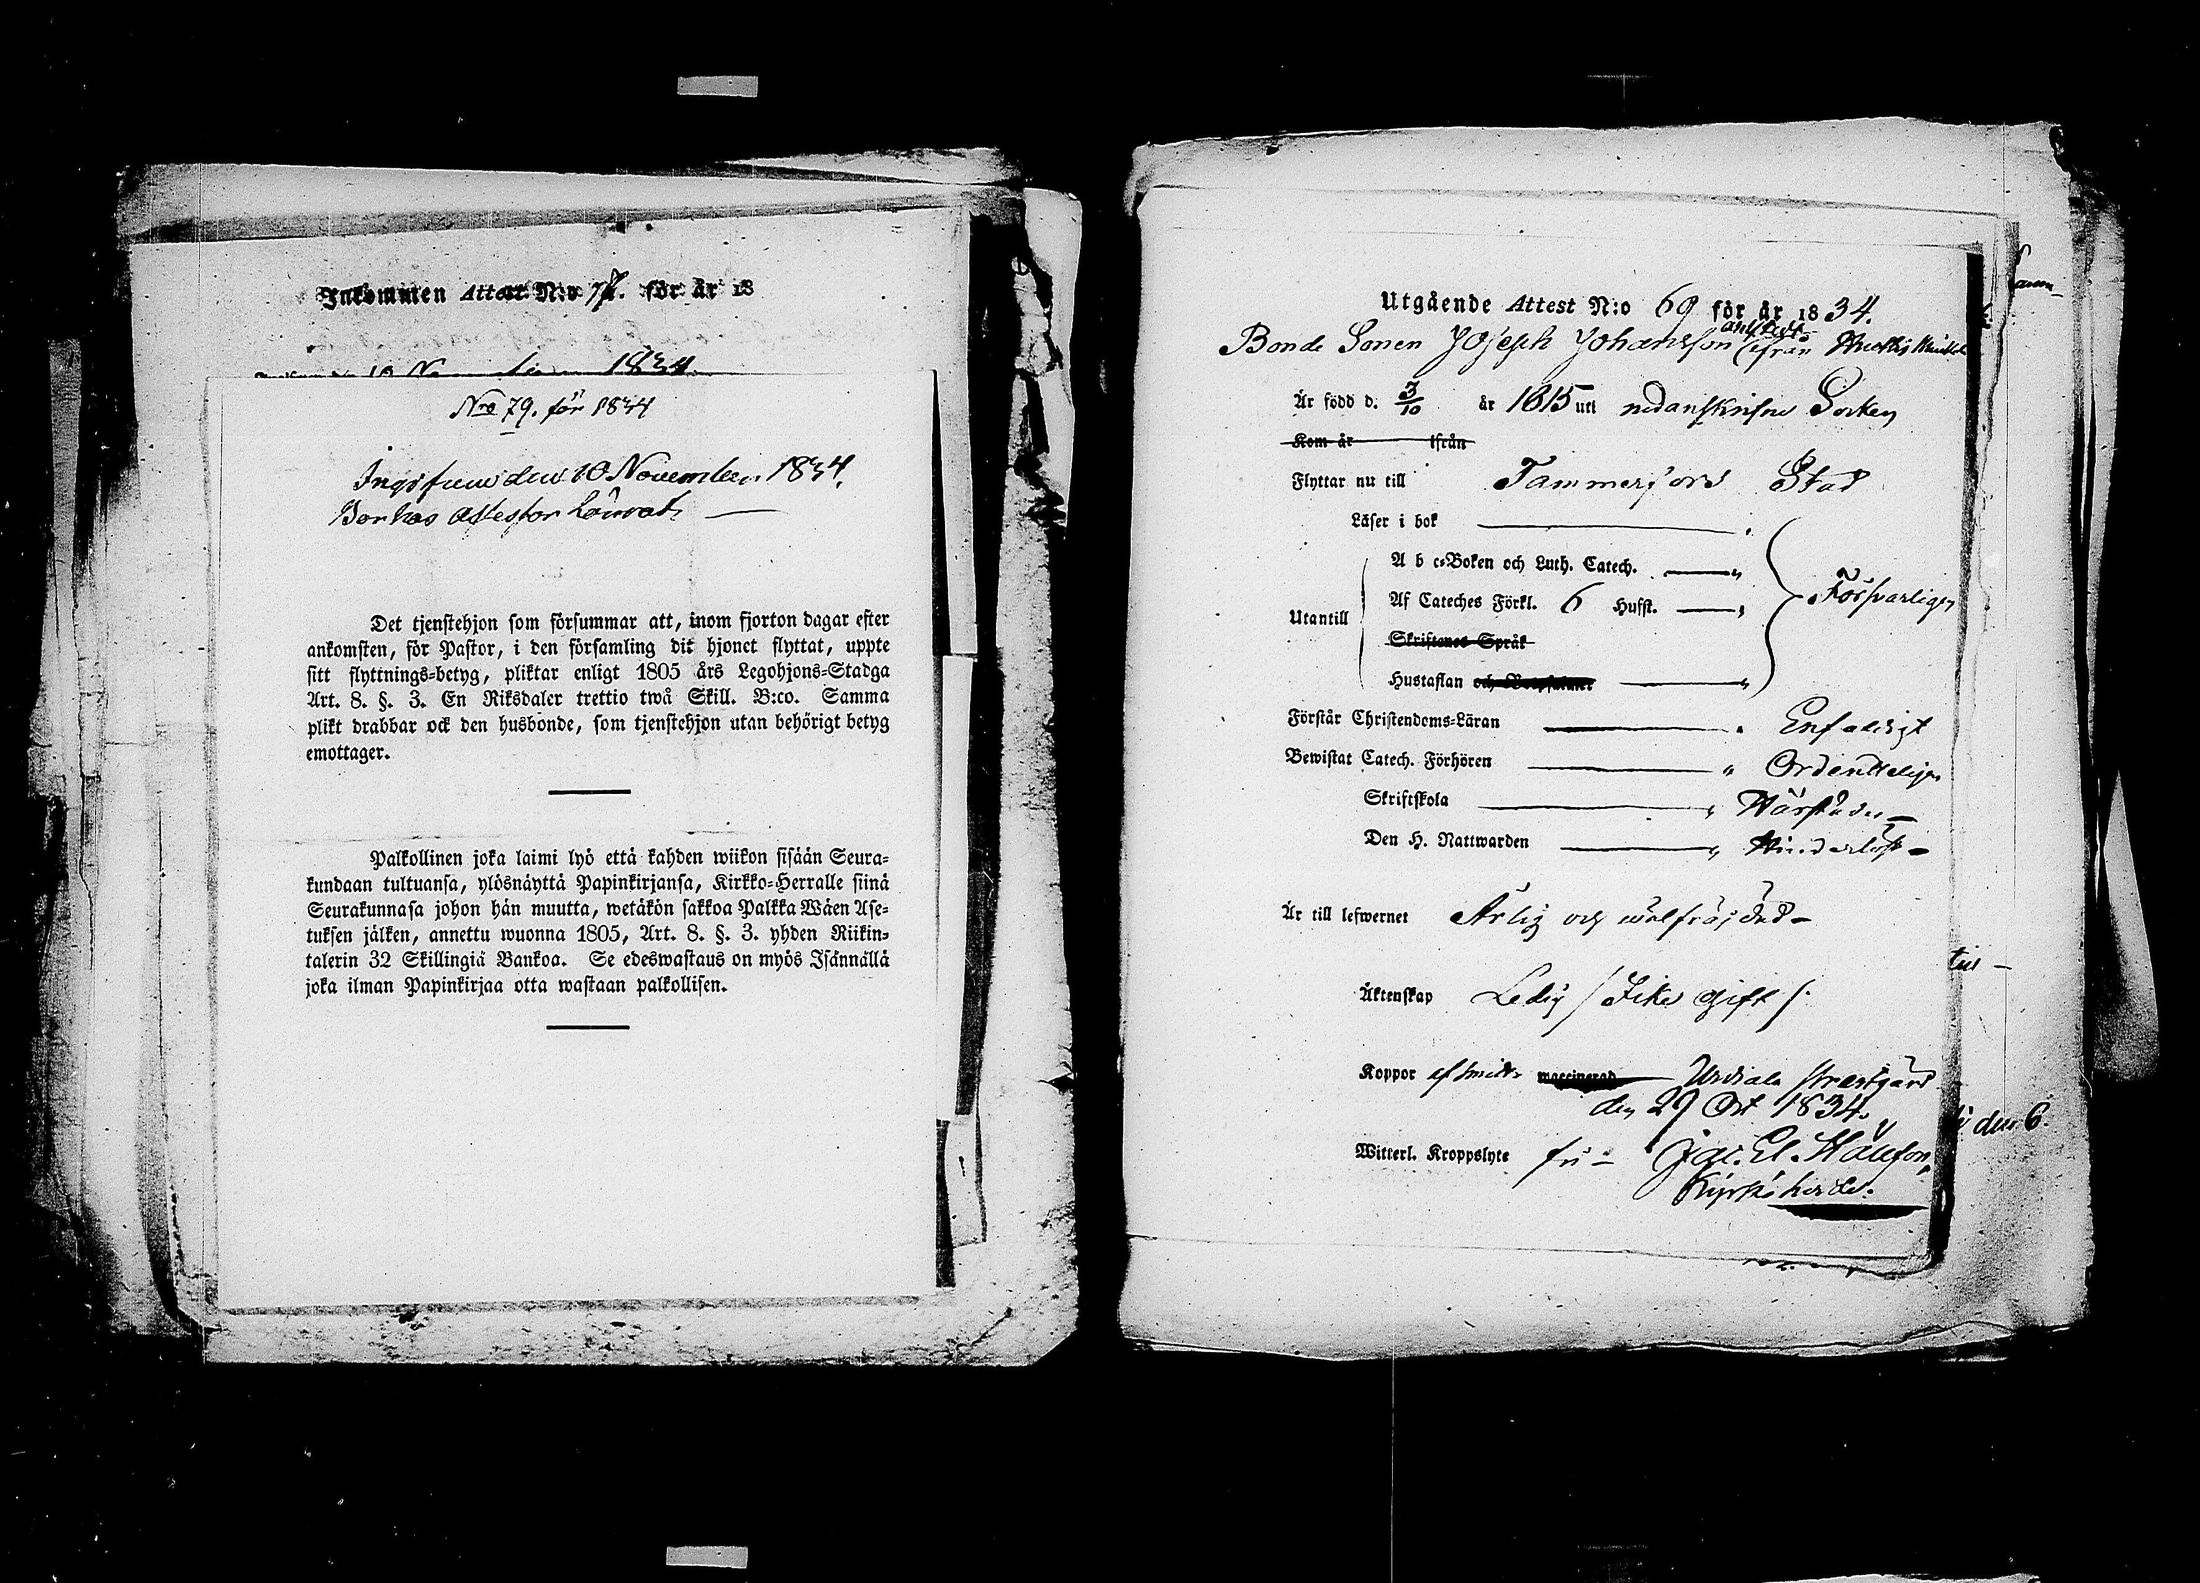 Inkommen Attest N:o för år 18
1834.
Nro 79. för 1834
den 10 November 1834.
Det tjenstehjon som försummar att, inom fjorton dagar efter
ankomsten, för Pastor, i den församling dit hjonet flyttat, uppte
sitt flyttnings-betyg, pliktar enligt 1805 års Legohjons-Stadga
Art. 8. §. 3. En Riksdaler trettio twå Skill. B:co. Samma
plikt drabbar ock den husbonde, som tjenstehjon utan behörigt betyg
emottager.
Palkollinen joka laimi lyö että kahden wiikon sisään Seura-
kundaan tultuansa, ylösnäyttä Papinkirjansa, Kirkko-Herralle siinä
Seurakunnasa johon hän muutta, wetäkön sakkoa Palkka Wäen Ase-
tuksen jälken, annettu wuonna 1805, Art. 8. §. 3. yhden Riikin-
talerin 32 Skillingiä Bankoa. Se edeswastaus on myös Isännällä
joka ilman Papinkirjaa otta wastaan palkollisen.
Utgående Attest N:o 69 för år 1834.
Bonde Sonen Joseph Johansson ifrån
Är född d. 3/10 år 1815 uti nedanskrifne Socken
Kom år ifrån
Flyttar nu till Tammerfors Stad
Läser i bok
A b c-Boken och Luth. Catech.
Utantill Af Cateches Förkl. 6 Hufst. Försvarligen
Skriftenes Språk
Hustaflan och
Förstår Christendoms-Läran Enfaldigt
Bewistat Catech. Förhören Ordentligen
Skriftskola
Den H. Nattwarden
Är till lefwernet Ärlig och wälfräjdad
Äktenskap Ledig / Icke gift /.
Koppor waccinerad Urdiala Prestgård
den 29 Oct 1834.
Witterl. Kroppslyte fri Jac. El.
Kyrkoherde.
den 6.